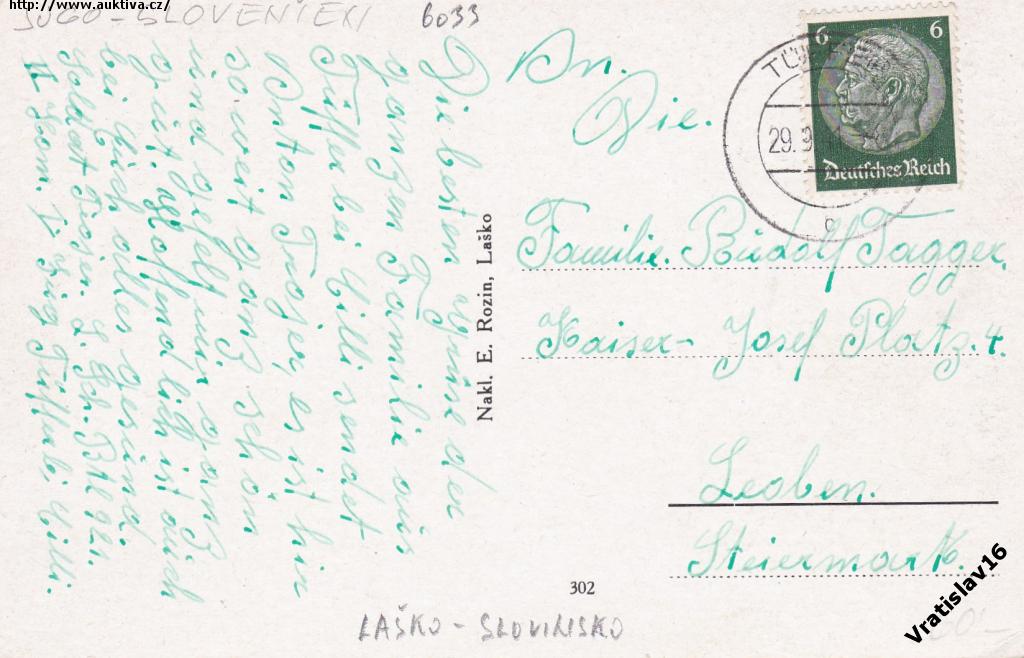 http://www.auktiva.cz/
JUGO-SLOVENIEN
6033
Die besten Grüße der
ganzen Familie aus
Tüffer bei Cilli sendet
Anton Troger, es ist hir
so weit ganz schön
und gefellt mir ganz
gut hoffendlich ist auch
bei Euch alles gesund.
Soldat
II Kom. I Zug Tüffer bei Cilli.
Nakl. E. Rozin, Laško
An.
Die.
Familie. Rudolf Tagger,
Kaiser- Josef Platz. 4.
Leoben.
Steiermark.
6 6
Deutsches Reich
29. 9
c
302
LAŠKO - SLOVINSKO
Vratislav16